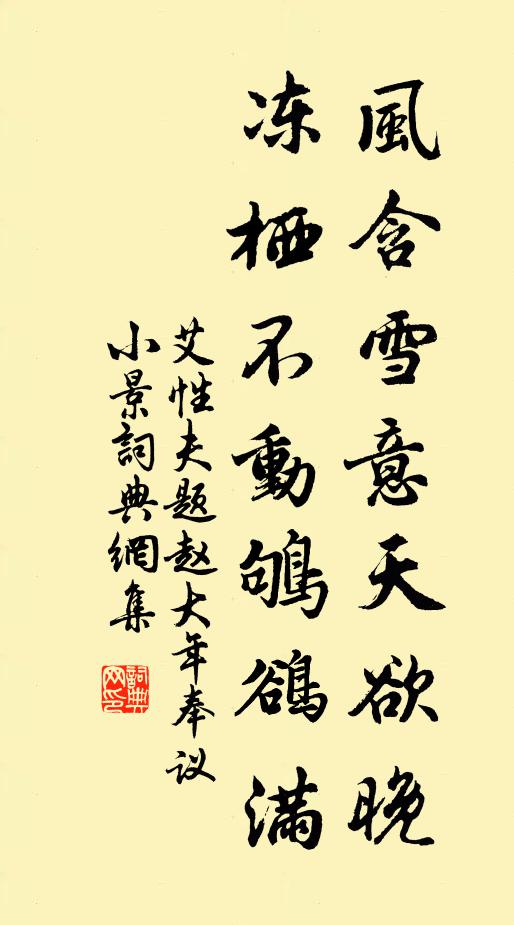 風含雪意天欲晚
冻栖不動鴝鵒满
艾性夫题赵大年奉议
小景詞典網集
詞典网印